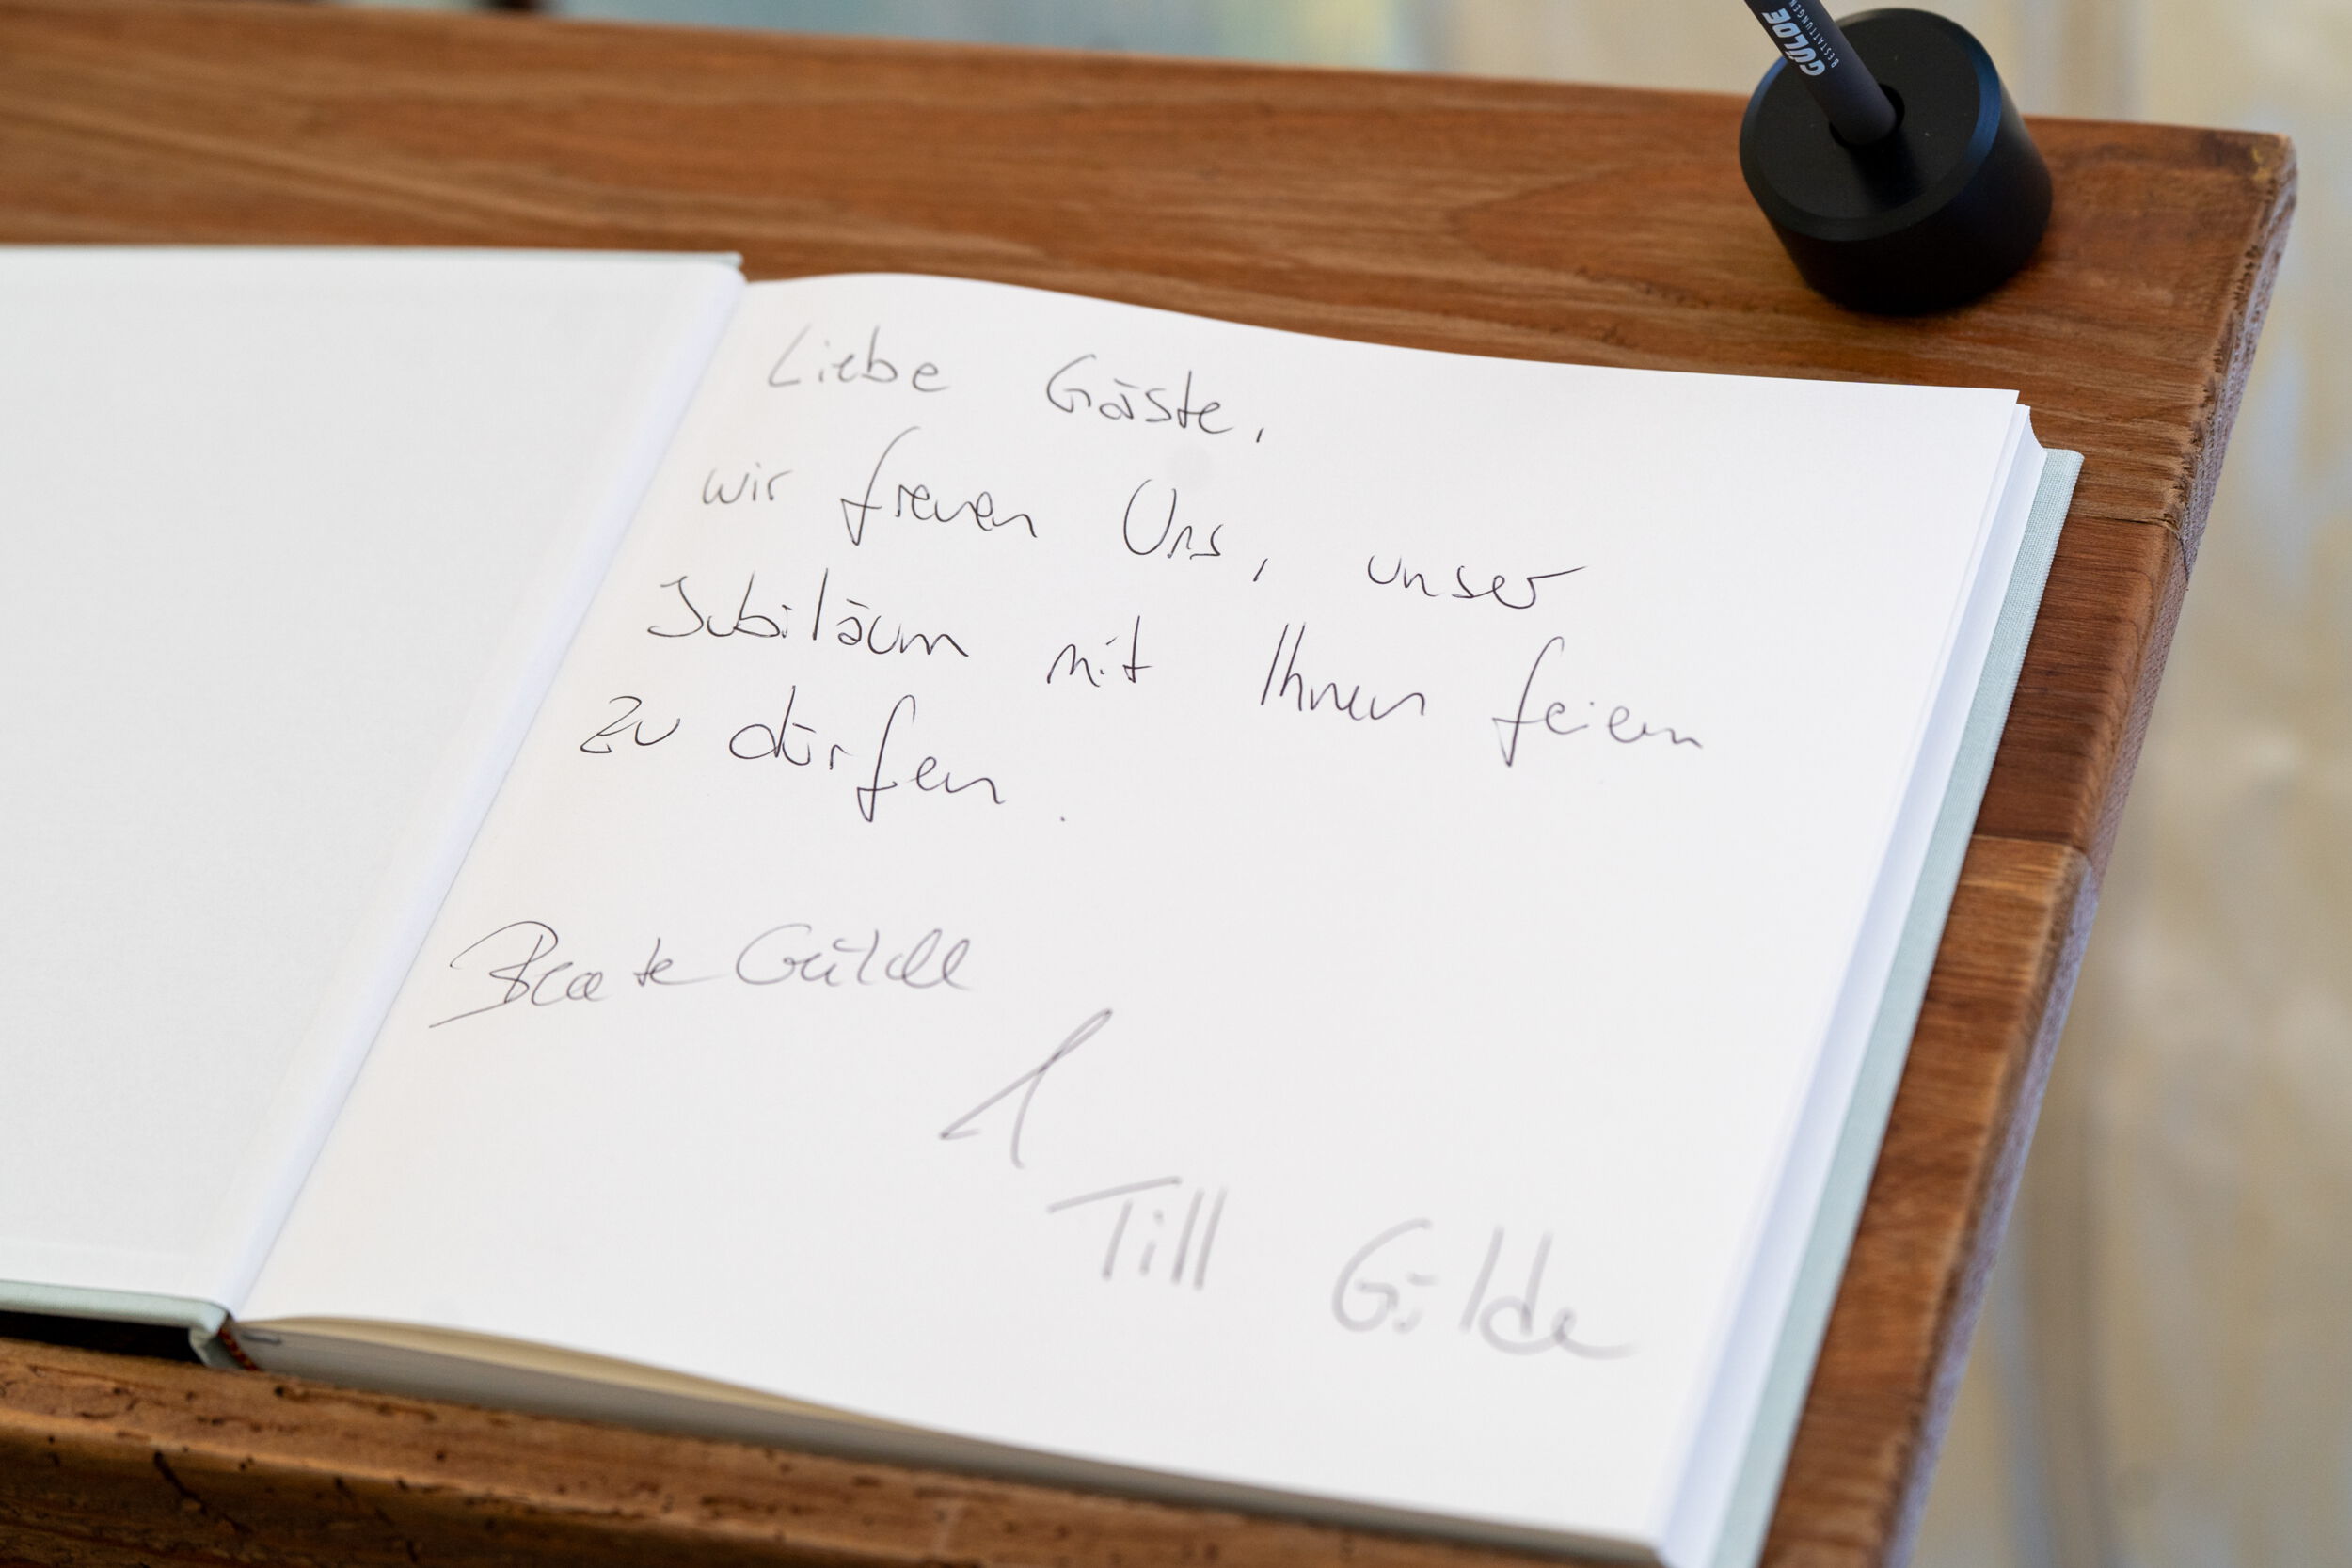 GÜLDE
BESTATTUNGEN
Liebe Gäste,
wir freuen Uns, unser
Jubiläum mit Ihnen feiern
zu dürfen.
Beate Gülde
Till Gülde